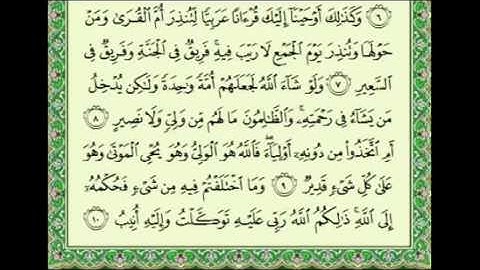 ٦ وَكَذَٰلِكَ أَوْحَيْنَآ إِلَيْكَ قُرْءَانًا عَرَبِيًّا لِّتُنذِرَ أُمَّ ٱلْقُرَىٰ وَمَنْ
حَوْلَهَا وَتُنذِرَ يَوْمَ ٱلْجَمْعِ لَا رَيْبَ فِيهِ ۚ فَرِيقٌ فِى ٱلْجَنَّةِ وَفَرِيقٌ فِى
ٱلسَّعِيرِ ٧ وَلَوْ شَآءَ ٱللَّهُ لَجَعَلَهُمْ أُمَّةً وَٰحِدَةً وَلَٰكِن يُدْخِلُ
مَن يَشَآءُ فِى رَحْمَتِهِۦ ۚ وَٱلظَّٰلِمُونَ مَا لَهُم مِّن وَلِىٍّ وَلَا نَصِيرٍ ٨
أَمِ ٱتَّخَذُوا۟ مِن دُونِهِۦٓ أَوْلِيَآءَ ۖ فَٱللَّهُ هُوَ ٱلْوَلِىُّ وَهُوَ يُحْىِ ٱلْمَوْتَىٰ وَهُوَ
عَلَىٰ كُلِّ شَىْءٍ قَدِيرٌ ٩ وَمَا ٱخْتَلَفْتُمْ فِيهِ مِن شَىْءٍ فَحُكْمُهُۥٓ
إِلَى ٱللَّهِ ۚ ذَٰلِكُمُ ٱللَّهُ رَبِّى عَلَيْهِ تَوَكَّلْتُ وَإِلَيْهِ أُنِيبُ ١٠